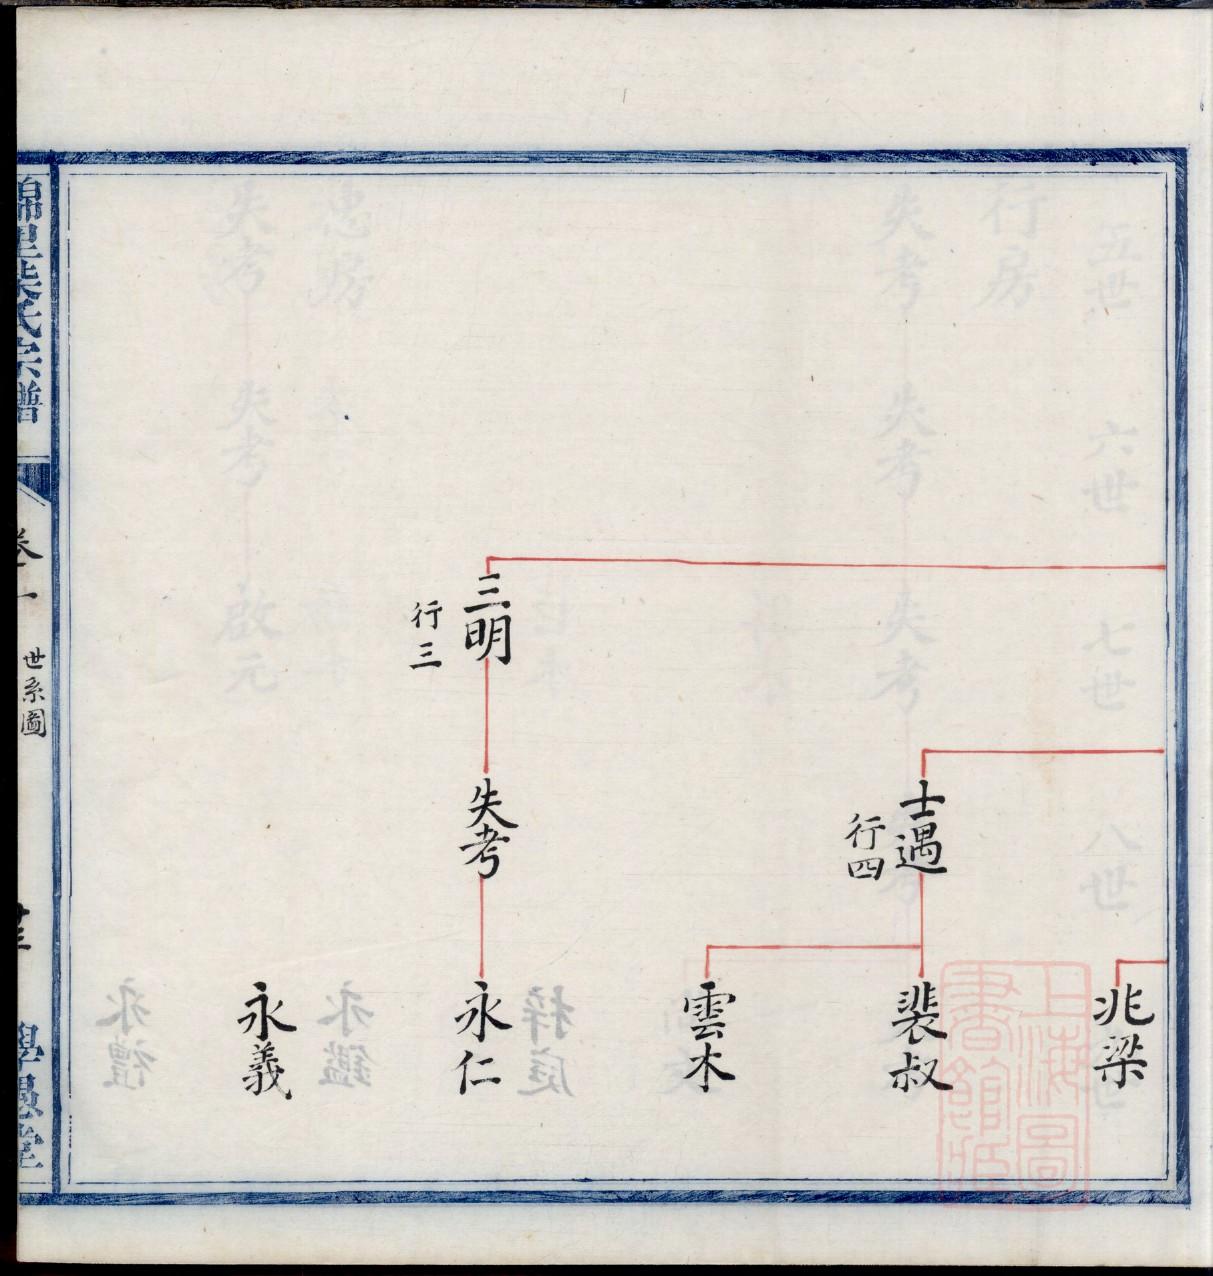 兆梁
士遇
行四
裴叔
雲木
三明
行三
失考
永仁
永義
錦里柴氏宗譜
卷一
世系圖
上海圖書館藏